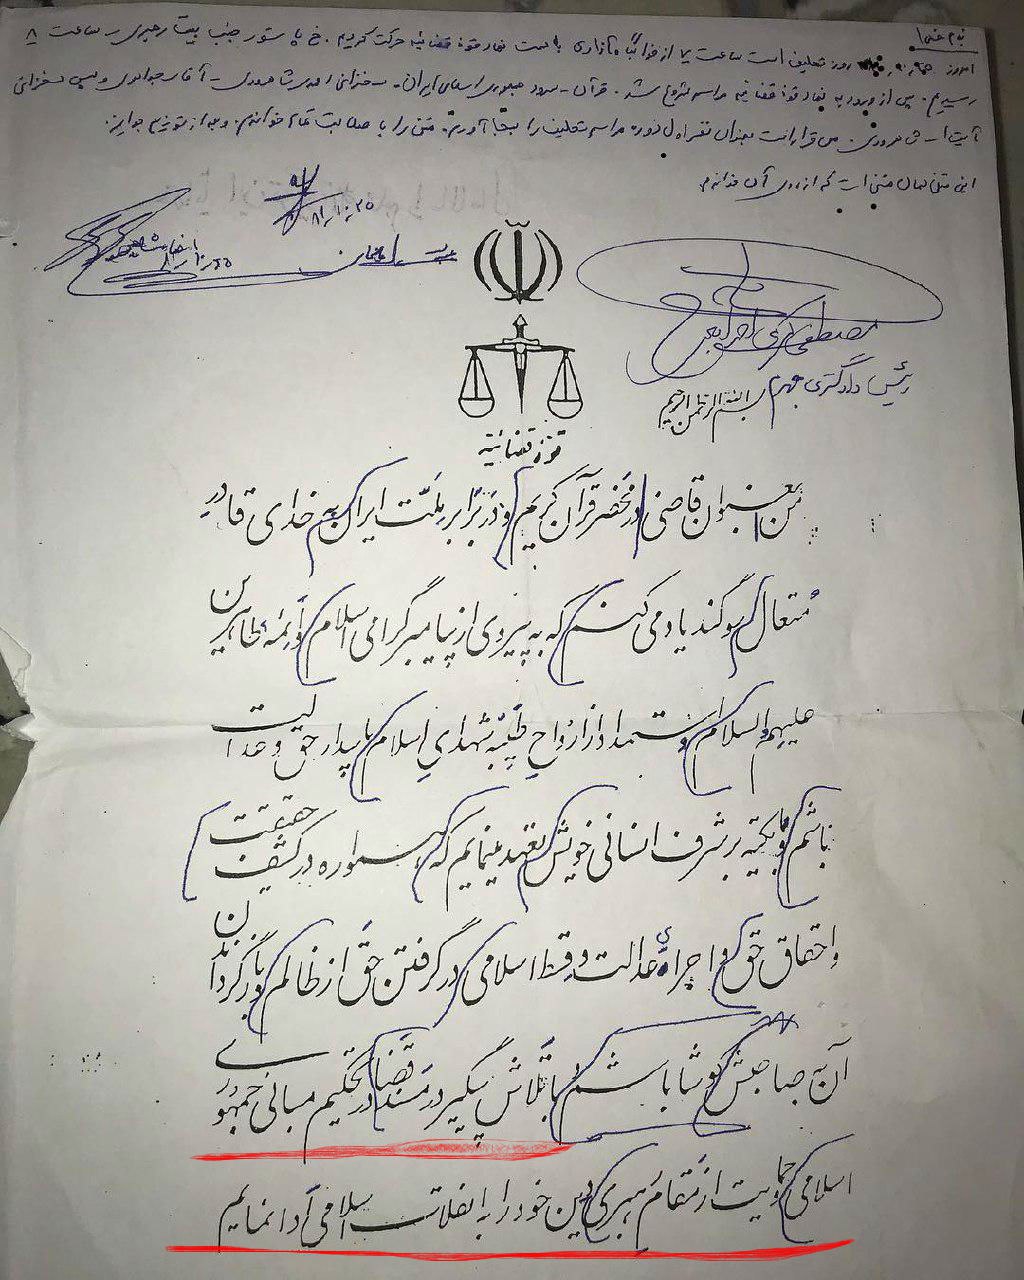 بنام خدا
امروز روز تحلیف است ساعت ۷ از خوابگاه اداری به سمت نهاد قوه قضائیه حرکت کردیم. جنب بیت رهبری ساعت ۸
رسیدیم. پس از ورود به نهاد قوه قضائیه مراسم شروع شد. قرآن - سرود جمهوری اسلامی ایران - سخنرانی شاهرودی - آقای جوادی و سپس سخنرانی
شاهرودی. من قرار است بعنوان نفر اول مراسم تحلیف را بجا آورم. متن را با صلابت تمام خواندم. و بعد از توزیع جوایز.
این متن همان متنی است که از روی آن خواندم
۸۱/۱۰/۲۵
رئیس دادگستری جهرم
بسم الله الرحمن الرحیم
قوه قضائیه
من بعنوان قاضی در محضر قرآن کریم و در برابر ملت ایران به خدای قادر
متعال سوگند یاد می کنم که به پیروی از پیامبر گرامی اسلام و ائمه طاهرین
علیهم السلام و استمداد از ارواح طیبه شهدای اسلام پاسدار حق و عدالت
باشم و با تکیه بر شرف انسانی خویش تعهد مینمایم که همواره در کشف حقیقت
و احقاق حق و اجرای عدالت و قسط اسلامی در گرفتن حق از ظالم و بازگرداندن
آن به صاحبش کوشا باشم و با تلاش پیگیر در مسند قضا در تحکیم مبانی جمهوری
اسلامی و حمایت از مقام رهبری دین خود را به انقلاب اسلامی ادا نمایم